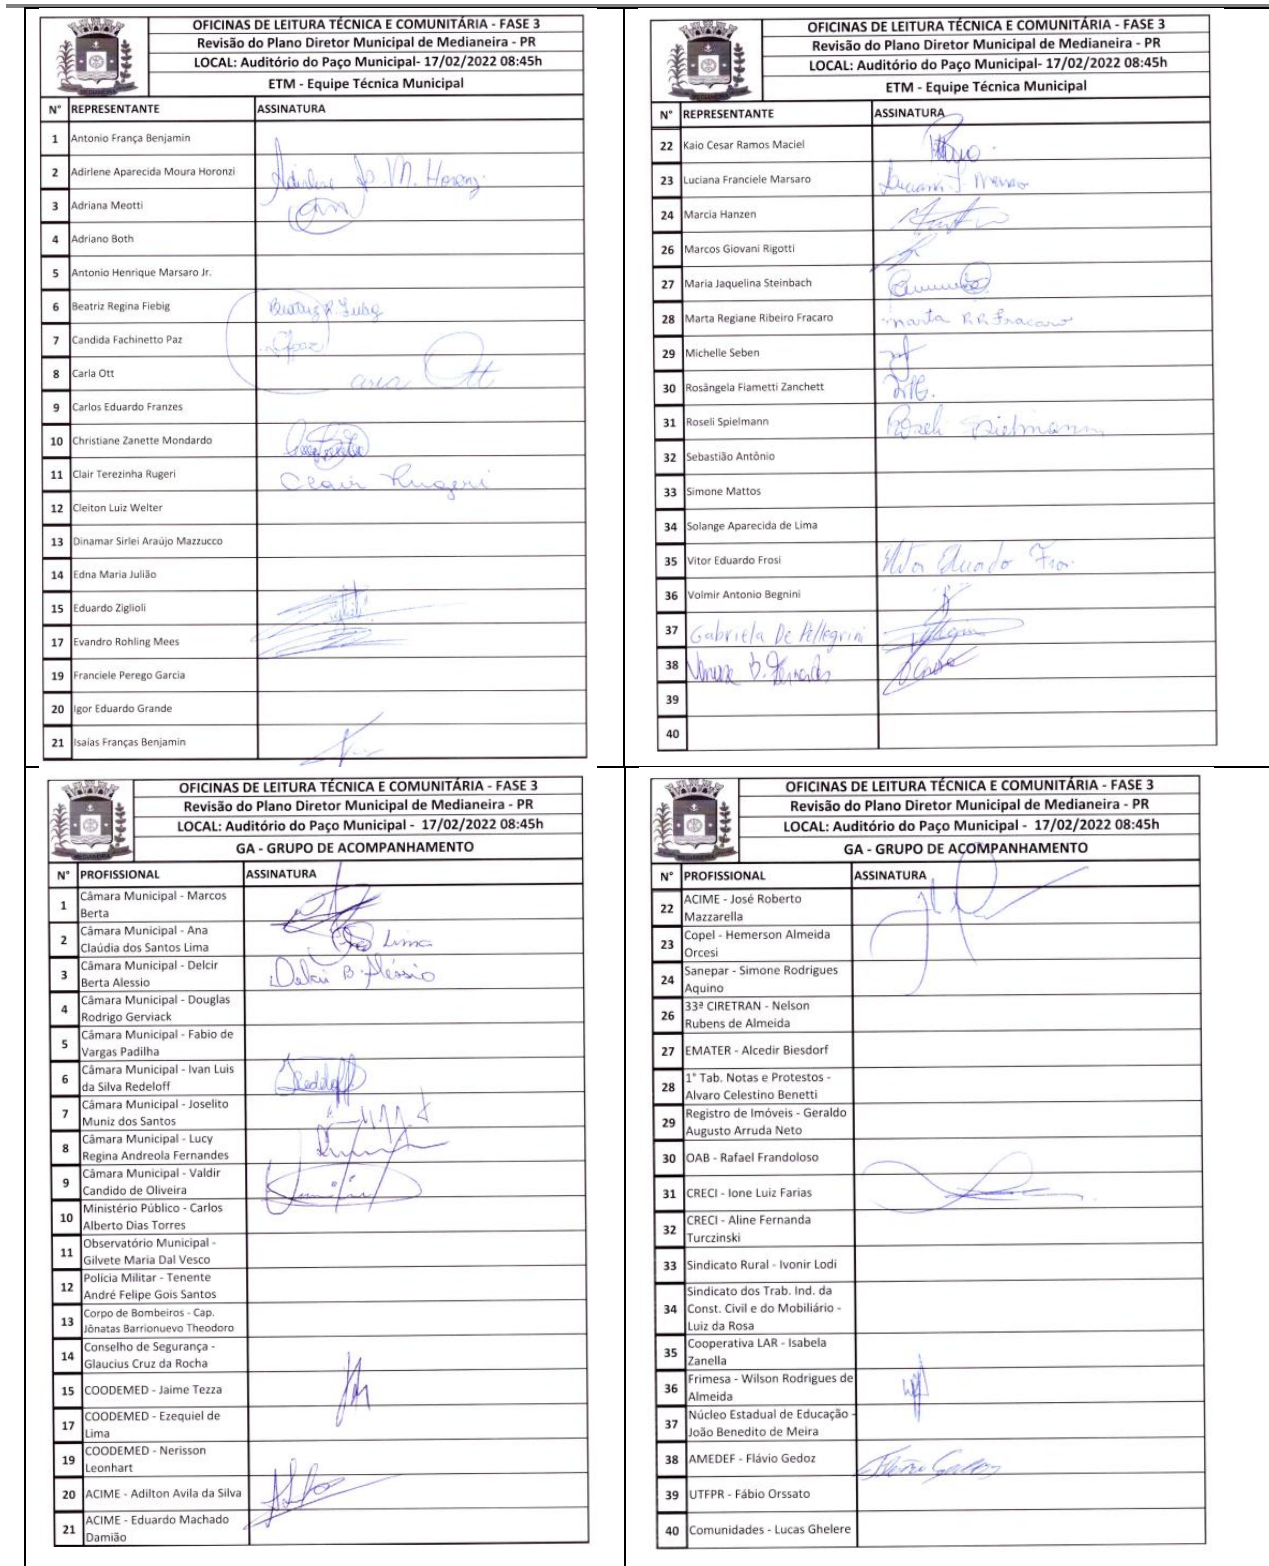 OFICINAS DE LEITURA TÉCNICA E COMUNITÁRIA - FASE 3
Revisão do Plano Diretor Municipal de Medianeira - PR
LOCAL: Auditório do Paço Municipal- 17/02/2022 08:45h
ETM - Equipe Técnica Municipal
N° REPRESENTANTE ASSINATURA
1 Antonio França Benjamin
2 Adirlene Aparecida Moura Horonzi Adirlene Ap. M. Horonzi
3 Adriana Meotti
4 Adriano Both
5 Antonio Henrique Marsaro Jr.
6 Beatriz Regina Fiebig Beatriz R. Fiebig
7 Candida Fachinetto Paz CFpaz
8 Carla Ott Carla Ott
9 Carlos Eduardo Franzes
10 Christiane Zanette Mondardo
11 Clair Terezinha Rugeri Clair Rugeri
12 Cleiton Luiz Welter
13 Dinamar Sirlei Araújo Mazzucco
14 Edna Maria Julião
15 Eduardo Ziglioli
17 Evandro Rohling Mees
19 Franciele Perego Garcia
20 Igor Eduardo Grande
21 Isaías Franças Benjamin
OFICINAS DE LEITURA TÉCNICA E COMUNITÁRIA - FASE 3
Revisão do Plano Diretor Municipal de Medianeira - PR
LOCAL: Auditório do Paço Municipal- 17/02/2022 08:45h
ETM - Equipe Técnica Municipal
N° REPRESENTANTE ASSINATURA
22 Kaio Cesar Ramos Maciel
23 Luciana Franciele Marsaro Luciana F Marsaro
24 Marcia Hanzen
26 Marcos Giovani Rigotti
27 Maria Jaquelina Steinbach
28 Marta Regiane Ribeiro Fracaro Marta R.R. Fracaro
29 Michelle Seben
30 Rosângela Fiametti Zanchett
31 Roseli Spielmann Roseli Spielmann
32 Sebastião Antônio
33 Simone Mattos
34 Solange Aparecida de Lima
35 Vitor Eduardo Frosi Vitor Eduardo Frosi
36 Volmir Antonio Begnini
37 Gabriela De Pellegrini
38
39
40
OFICINAS DE LEITURA TÉCNICA E COMUNITÁRIA - FASE 3
Revisão do Plano Diretor Municipal de Medianeira - PR
LOCAL: Auditório do Paço Municipal - 17/02/2022 08:45h
GA - GRUPO DE ACOMPANHAMENTO
N° PROFISSIONAL ASSINATURA
1 Câmara Municipal - Marcos
Berta
2 Câmara Municipal - Ana
Claúdia dos Santos Lima Lima
3 Câmara Municipal - Delcir
Berta Alessio Delcir B. Aléssio
4 Câmara Municipal - Douglas
Rodrigo Gerviack
5 Câmara Municipal - Fabio de
Vargas Padilha
6 Câmara Municipal - Ivan Luis
da Silva Redeloff Redeloff
7 Câmara Municipal - Joselito
Muniz dos Santos
8 Câmara Municipal - Lucy
Regina Andreola Fernandes
9 Câmara Municipal - Valdir
Candido de Oliveira
10 Ministério Público - Carlos
Alberto Dias Torres
11 Observatório Municipal -
Gilvete Maria Dal Vesco
12 Polícia Militar - Tenente
André Felipe Gois Santos
13 Corpo de Bombeiros - Cap.
Jônatas Barrionuevo Theodoro
14 Conselho de Segurança -
Glaucius Cruz da Rocha
15 COODEMED - Jaime Tezza
17 COODEMED - Ezequiel de
Lima
19 COODEMED - Nerisson
Leonhart
20 ACIME - Adilton Avila da Silva
21 ACIME - Eduardo Machado
Damião
OFICINAS DE LEITURA TÉCNICA E COMUNITÁRIA - FASE 3
Revisão do Plano Diretor Municipal de Medianeira - PR
LOCAL: Auditório do Paço Municipal - 17/02/2022 08:45h
GA - GRUPO DE ACOMPANHAMENTO
N° PROFISSIONAL ASSINATURA
22 ACIME - José Roberto
Mazzarella
23 Copel - Hemerson Almeida
Orcesi
24 Sanepar - Simone Rodrigues
Aquino
26 33ª CIRETRAN - Nelson
Rubens de Almeida
27 EMATER - Alcedir Biesdorf
28 1° Tab. Notas e Protestos -
Alvaro Celestino Benetti
29 Registro de Imóveis - Geraldo
Augusto Arruda Neto
30 OAB - Rafael Frandoloso
31 CRECI - Ione Luiz Farias
32 CRECI - Aline Fernanda
Turczinski
33 Sindicato Rural - Ivonir Lodi
34 Sindicato dos Trab. Ind. da
Const. Civil e do Mobiliário -
Luiz da Rosa
35 Cooperativa LAR - Isabela
Zanella
36 Frimesa - Wilson Rodrigues de
Almeida
37 Núcleo Estadual de Educação -
João Benedito de Meira
38 AMEDEF - Flávio Gedoz Flávio Gedoz
39 UTFPR - Fábio Orssato
40 Comunidades - Lucas Ghelere